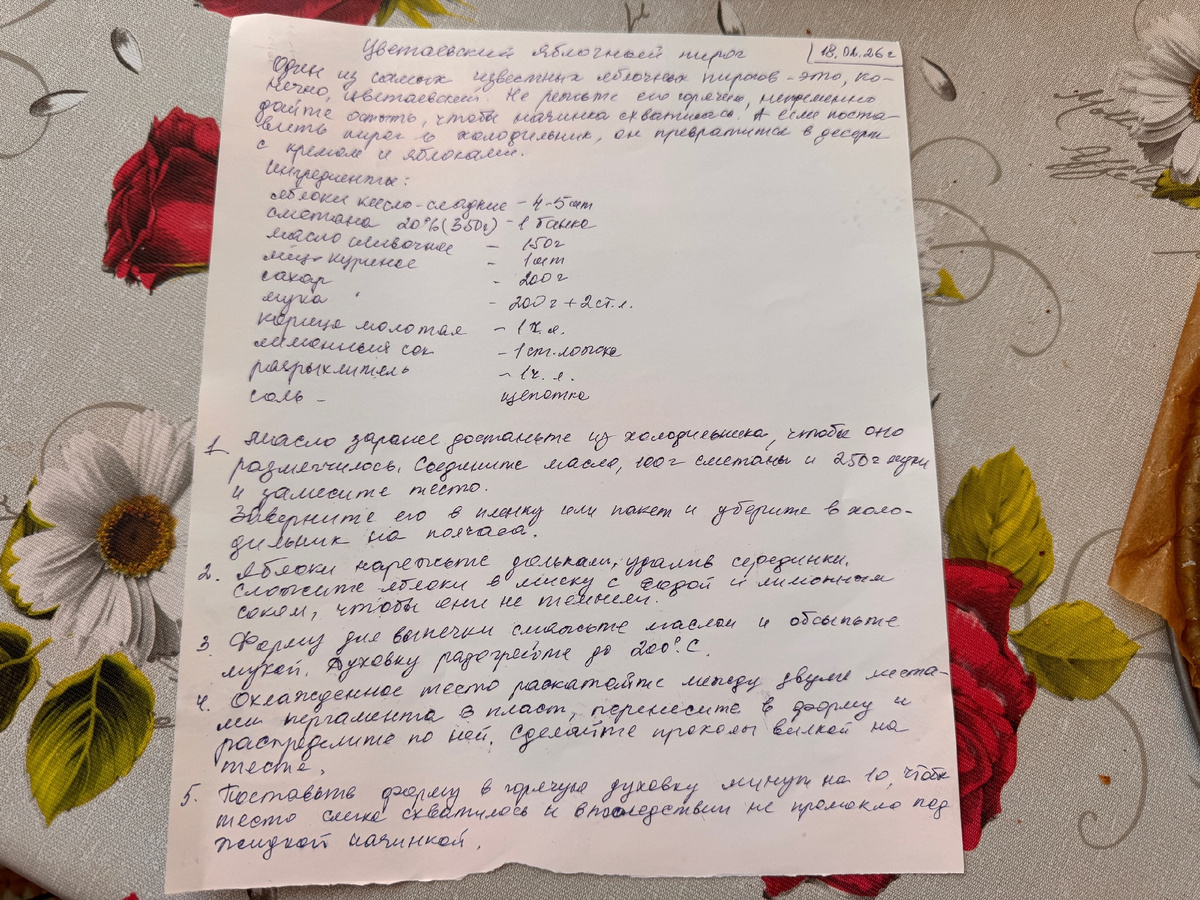 Цветаевский яблочный пирог
18.01.26г
Один из самых известных яблочных пирогов - это, ко-
нечно, Цветаевский. Не режьте его горячим, непременно
дайте остыть, чтобы начинка схватилась. А если поста-
вить пирог в холодильник, он превратится в десерт
с кремом и яблоками.
Ингредиенты:
яблоки кисло-сладкие - 4-5шт
сметана 20% (350г) - 1 банка
масло сливочное - 150г
яйцо куриное - 1шт
сахар - 200г
мука - 200г + 2ст.л.
корица молотая - 1ч.л.
лимонный сок - 1ст.ложка
разрыхлитель - 1ч.л.
соль - щепотка
1. Масло заранее достаньте из холодильника, чтобы оно
размягчилось. Соедините масло, 100г сметаны и 250г муки
и замесите тесто.
Заверните его в пленку или пакет и уберите в холо-
дильник на полчаса.
2. Яблоки нарежьте дольками, удалив серединки.
Сложите яблоки в миску с водой и лимонным
соком, чтобы они не темнели.
3. Форму для выпечки смажьте маслом и обсыпьте
мукой. Духовку разогрейте до 200°С.
4. Охлажденное тесто раскатайте между двумя листа-
ми пергамента в пласт, перенесите в форму и
распределите по ней. Сделайте проколы вилкой на
тесте.
5. Поставьте форму в горячую духовку минут на 10, чтобы
тесто слегка схватилось и впоследствии не промокло под
жидкой начинкой.